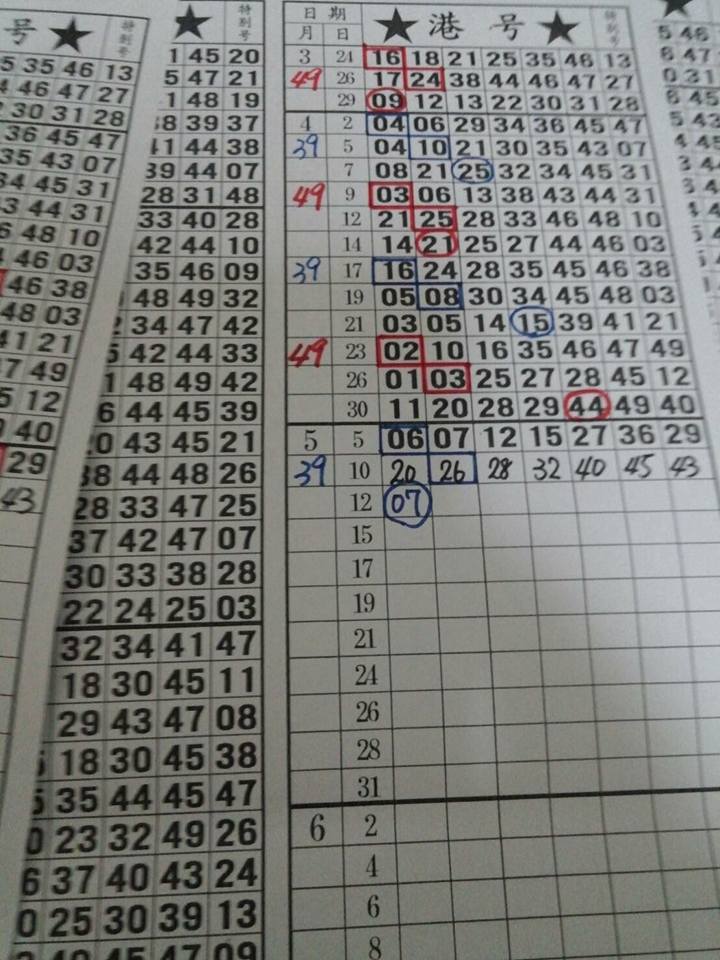 号 ★ 特别号
35 46 13
46 47 27
30 31 28
36 45 47
35 43 07
34 45 31
44 31
48 10
46 03
46 38
48 03
41 21
49
12
40
29
43
★ 特别号
45 20
47 21
48 19
39 37
44 38
39 44 07
28 31 48
33 40 28
42 44 10
35 46 09
48 49 32
34 47 42
42 44 33
48 49 42
44 45 39
43 45 21
44 48 26
28 33 47 25
37 42 47 07
30 33 38 28
22 24 25 03
32 34 41 47
18 30 45 11
29 43 47 08
18 30 45 38
35 44 45 47
23 32 49 26
37 40 43 24
25 30 39 13
47 09
日 期 ★ 港 号 ★ 特别号
月 日
3 24 16 18 21 25 35 46 13
49 26 17 24 38 44 46 47 27
29 09 12 13 22 30 31 28
4 2 04 06 29 34 36 45 47
39 5 04 10 21 30 35 43 07
7 08 21 25 32 34 45 31
49 9 03 06 13 38 43 44 31
12 21 25 28 33 46 48 10
14 14 21 25 27 44 46 03
39 17 16 24 28 35 45 46 38
19 05 08 30 34 45 48 03
21 03 05 14 15 39 41 21
49 23 02 10 16 35 46 47 49
26 01 03 25 27 28 45 12
30 11 20 28 29 44 49 40
5 5 06 07 12 15 27 36 29
39 10 20 26 28 32 40 45 43
12 07
15
17
19
21
24
26
28
31
6 2
4
6
8